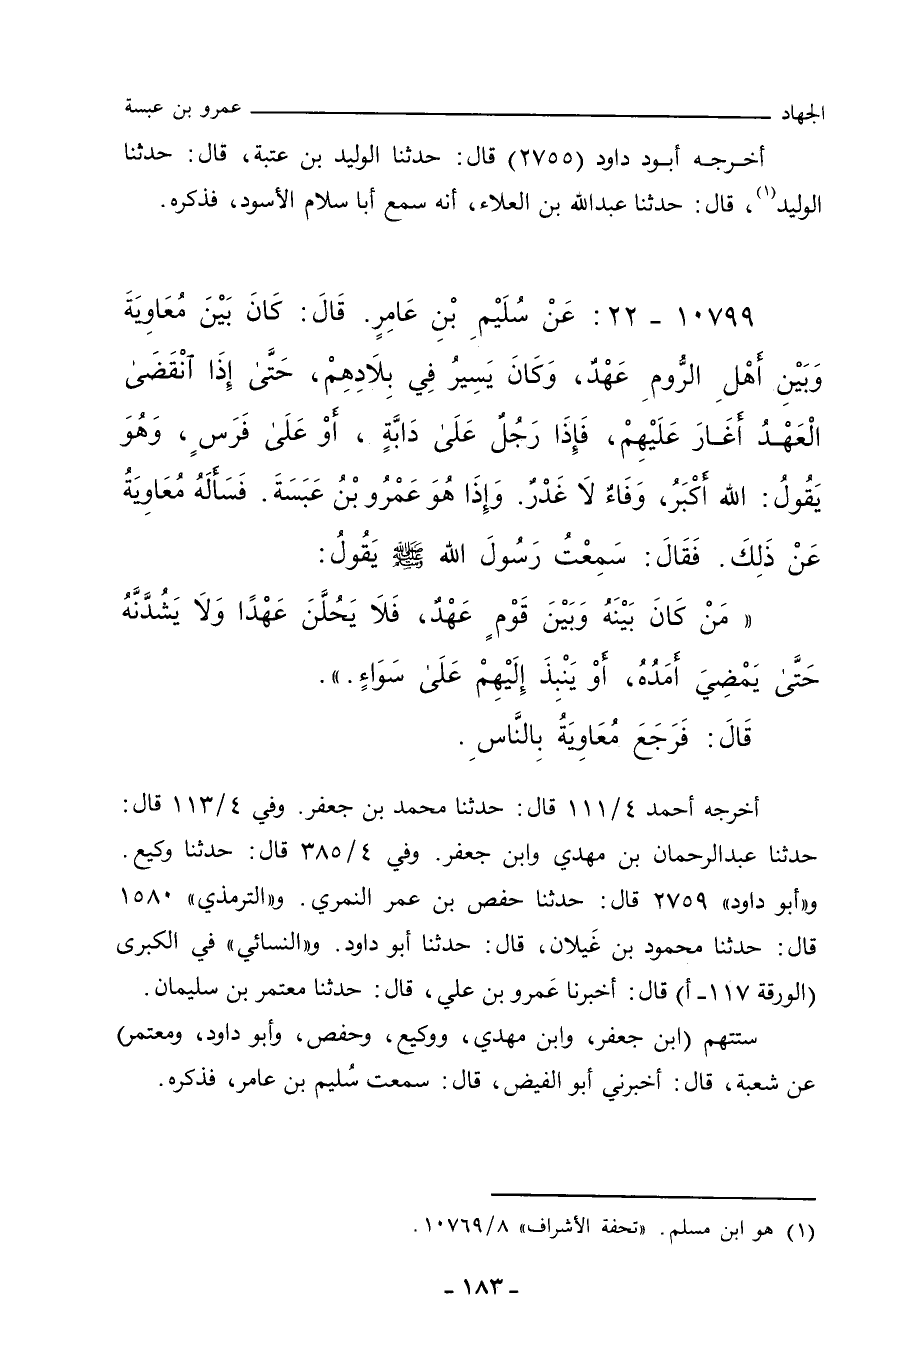 الجهاد ــــــــــ عمرو بن عبسة
أخـرجـه أبـود داود (٢٧٥٥) قال: حدثنا الوليد بن عتبة، قال: حدثنا
الوليد(١)، قال: حدثنا عبدالله بن العلاء، أنه سمع أبا سلام الأسود، فذكره.
١٠٧٩٩ ـ ٢٢: عَنْ سُلَيْمِ بْنِ عَامِرٍ. قَالَ: كَانَ بَيْنَ مُعَاوِيَةَ
وَبَيْنِ أَهْلِ الرُّومِ عَهْدٌ، وَكَانَ يَسِيرُ فِي بِلَادِهِمْ، حَتَّىٰ إِذَا ٱنْقَضَىٰ
الْعَهْـدُ أَغَـارَ عَلَيْهِمْ، فَإِذَا رَجُلٌ عَلَىٰ دَابَّةٍ، أَوْ عَلَىٰ فَرَسٍ، وَهُوَ
يَقُولُ: الله أَكْبَرُ، وَفَاءٌ لَا غَدْرٌ. وَإِذَا هُوَ عَمْرُو بْنُ عَبَسَةَ. فَسَأَلَهُ مُعَاوِيَةُ
عَنْ ذَلِكَ. فَقَالَ: سَمِعْتُ رَسُولَ الله ﷺ يَقُولُ:
« مَنْ كَانَ بَيْنَهُ وَبَيْنَ قَوْمٍ عَهْدٌ، فَلَا يَحُلَّنَ عَهْدًا وَلَا يَشُدَّنَّهُ
حَتَّىٰ يَمْضِيَ أَمَدُهُ، أَوْ يَنْبِذَ إِلَيْهِمْ عَلَىٰ سَوَاءٍ.».
قَالَ: فَرَجَعَ مُعَاوِيَةُ بِالنَّاسِ.
أخرجه أحمد ٤/١١١ قال: حدثنا محمد بن جعفر. وفي ٤/١١٣ قال:
حدثنا عبدالرحمان بن مهدي وابن جعفر. وفي ٤/٣٨٥ قال: حدثنا وكيع.
و«أبو داود» ٢٧٥٩ قال: حدثنا حفص بن عمر النمري. و«الترمذي» ١٥٨٠
قال: حدثنا محمود بن غَيلان، قال: حدثنا أبو داود. و«النسائي» في الكبرى
(الورقة ١١٧ـ أ) قال: أخبرنا عَمرو بن علي، قال: حدثنا معتمر بن سليمان.
ستتهم (ابن جعفر، وابن مهدي، ووكيع، وحفص، وأبو داود، ومعتمر)
عن شعبة، قال: أخبرني أبو الفيض، قال: سمعت سُليم بن عامر، فذكره.
(١) هو ابن مسلم. «تحفة الأشراف» ٨/١٠٧٦٩.
ـ ١٨٣ ـ